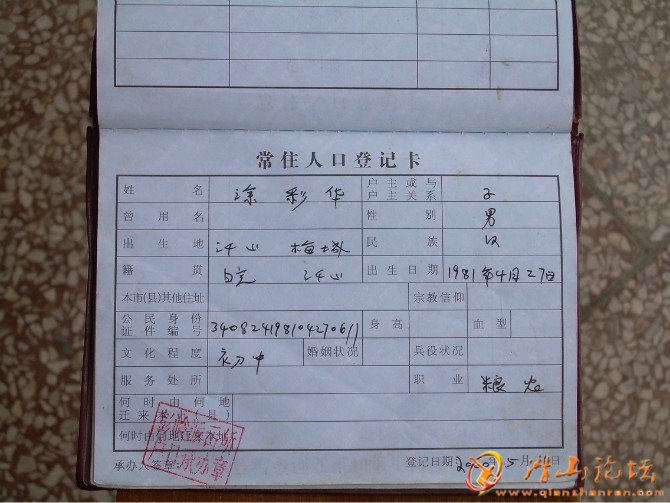 常住人口登记卡
姓名 涂彩华 户主或与户主关系 子
曾用名 性别 男
出生地 潜山 梅城 民族 汉
籍贯 皖 潜山 出生日期 1981年4月27日
本市(县)其他住址 宗教信仰
公民身份证件编号 340824198104270611 身高 血型
文化程度 初中 婚姻状况 兵役状况
服务处所 职业 粮农
何时由何地迁来本市(县)
何时由何地迁来本址
承办人签章: 登记日期: 年5月 日
潜山论坛
www.qianshanren.com